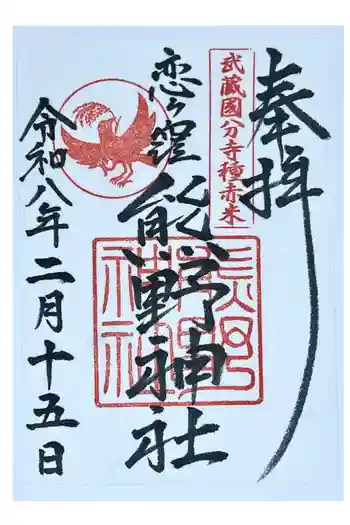 奉拝
武蔵國分寺種赤米
恋ヶ窪
熊野神社
熊野神社
令和八年二月十五日